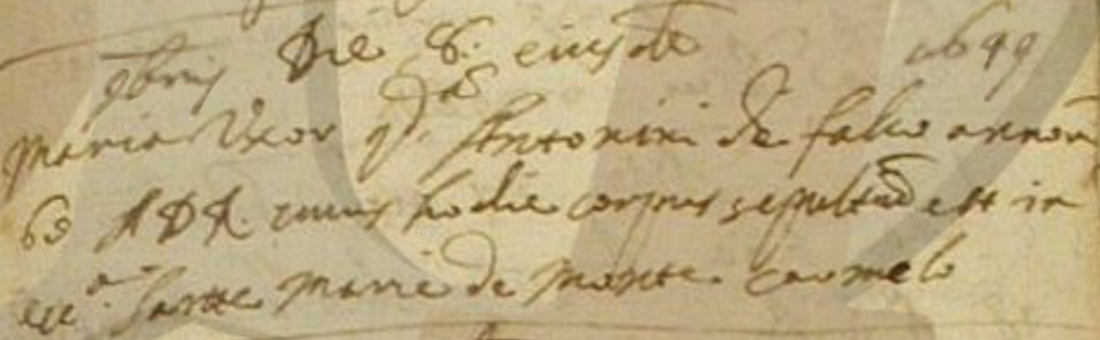 Die 8. eiusde 1649
9bris
Maria Uxor qd. Antonini de falco annor
60 A D R. cuius hodie corpus sepultu est in
ecca. Sante Marie de Monte Carmelo